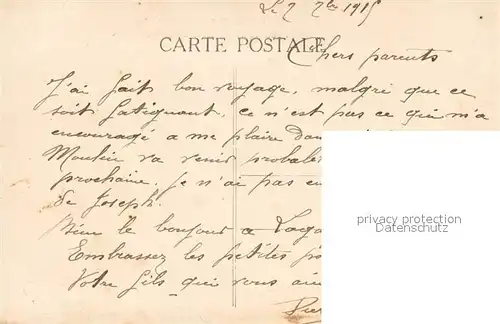 Le 7 7bre 1915
CARTE POSTALE
Chers parents
J'ai fait bon voyage, malgré que ce
soit fatiguant, ce n'est pas ce qui m'a
encouragé a me plaire dan
Moulin va venir probable
prochaine. Je n'ai pas en
de Joseph.
le bonjour a
Embrassez les petites
Votre fils qui vous aim
privacy protection